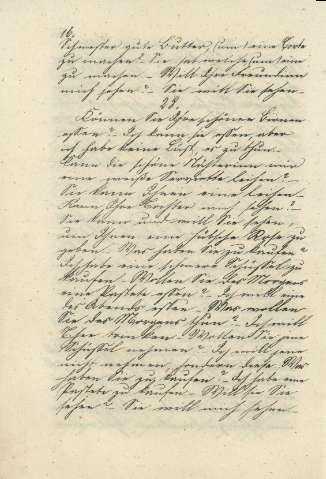 16.
Schwester gute Butter, um eine Torte
zu machen? Sie hat welche, um eine
zu machen. Will Ihre Freundinn
mich sehen? Sie will Sie sehen.
28.
Können Sie Ihre schönen Birnen
essen? Ich kann sie essen, aber
ich habe keine Lust, es zu thun.
Kann die schöne Nachbarinn mir
eine große Serviette leihen?
Sie kann Ihnen eine leihen.
Kann Ihre Tochter mich sehen?
Sie kann und will Sie sehen,
um Ihnen eine hübsche Rose zu
geben. Was haben Sie zu kaufen?
Ich habe eine schwere Schüssel zu
kaufen. Wollen Sie des Morgens
eine Pastete essen? Ich will eine
des Abends essen. Was wollen
Sie des Morgens thun? Ich will
Thee trinken. Wollen Sie jene
Schüssel nehmen? Ich will jene
nicht nehmen, sondern diese. Was
haben Sie zu kaufen? Ich habe eine
Pastete zu kaufen. Will sie Sie
sehen? Sie will mich sehen.